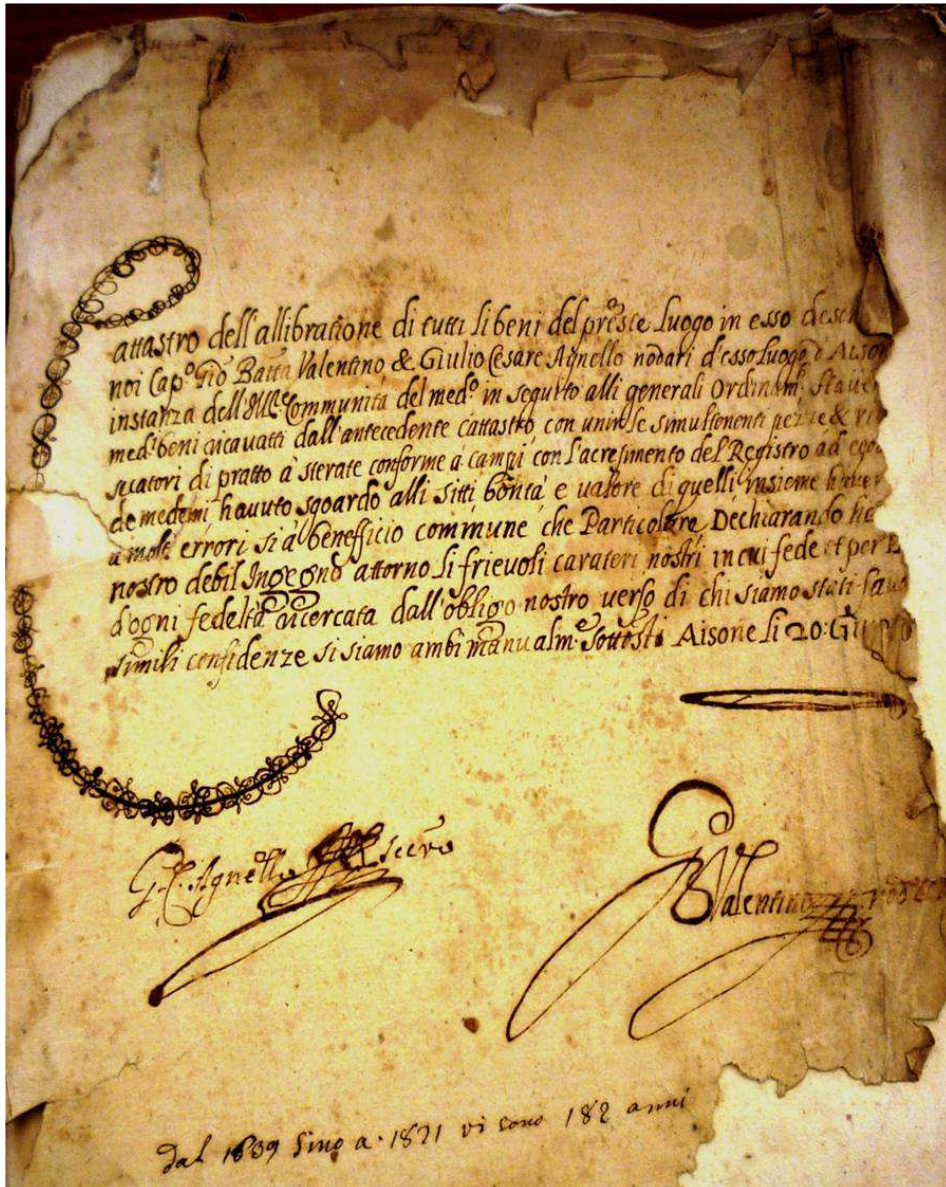 Cattastro dell'allibratione di tutti li beni del pręsẽte Luogo in esso
noi Cap.º Gio Batta Valentino & Giulio Cesare Agnello nodari d'esso Luogo d'
instanza dell' Communità del med.º in seguito alli generali Ordinam.
med.i beni ricavatti dall'antecedente cattastro, con unirsle simultenenti pezze &
sucatori di pratto à sterate conforme à campi con l'acresimento del Registro ad
de medemi, havuto sguardo alli sitti bontà e valore di quelli, insieme
a molti errori si à benefficio commune che Particolare Dechiarando
nostro debil Ingegno attorno li frievoli carateri nostri in cui fede et per
d'ogni fedeltà ricercata dall'obligo nostro verso di chi siamo stati
simili confidenze si siamo ambi manualm.e sottosti Aisone li 20:
G. C. Agnello
G Valentino
dal 1639 sino a. 1821 vi sono 182 anni